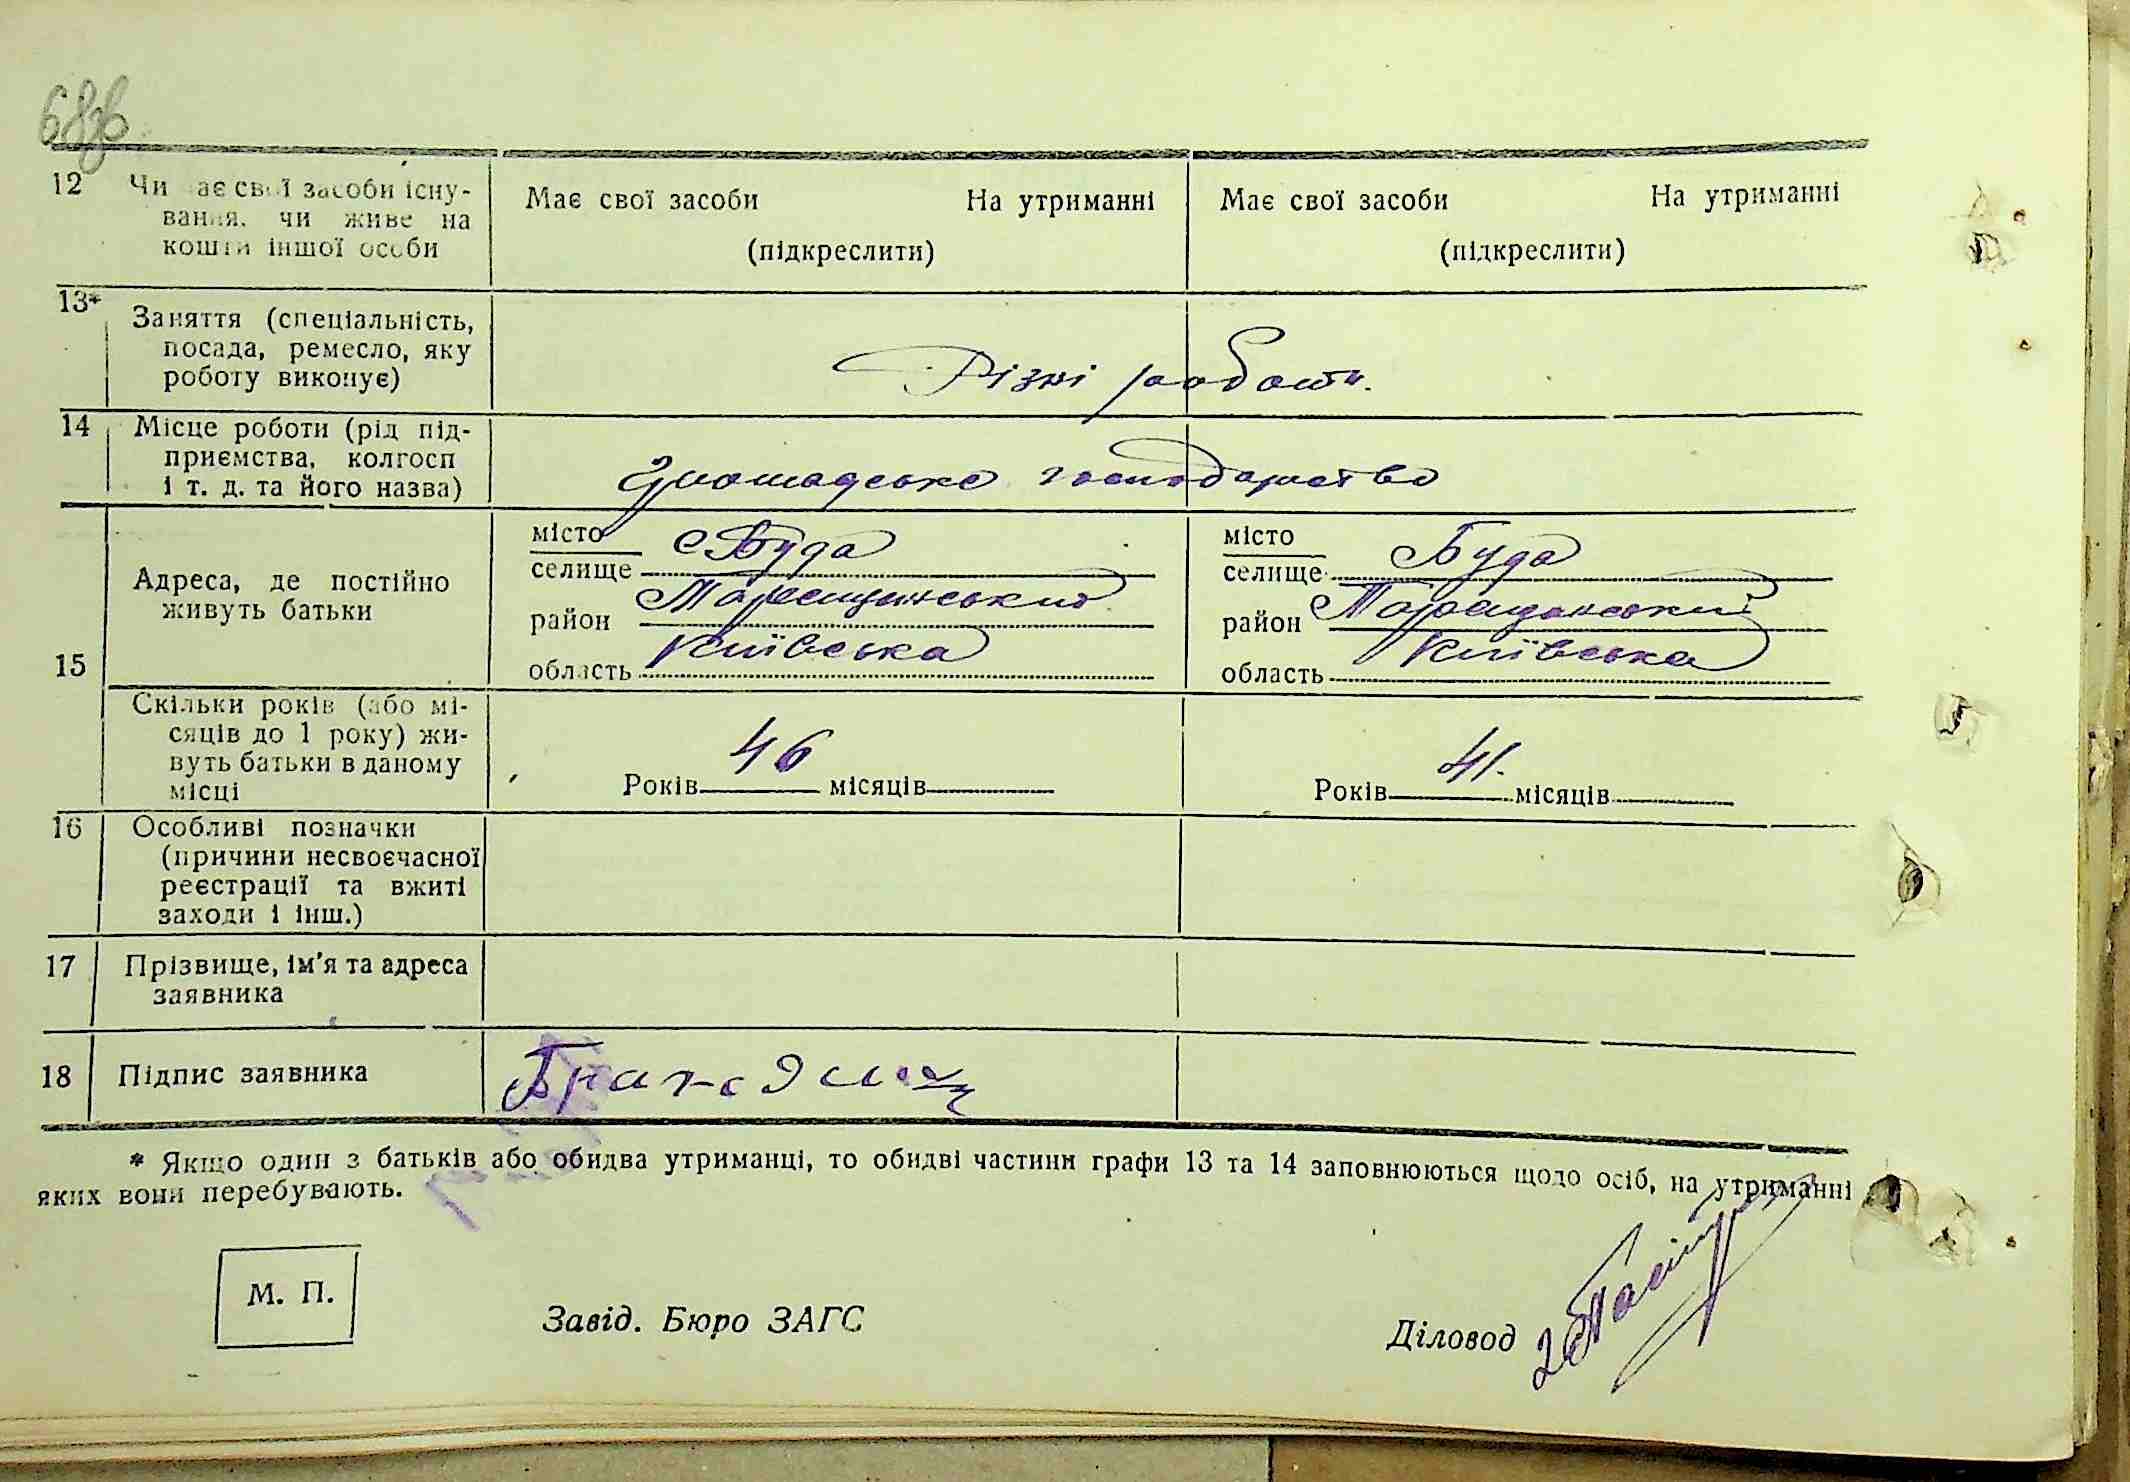 68зв
12 Чи має свої засоби існу-
вання, чи живе на
кошти іншої особи
Має свої засоби На утриманні
(підкреслити)
Має свої засоби На утриманні
(підкреслити)
13* Заняття (спеціальність,
посада, ремесло, яку
роботу виконує)
Різні роботи.
14 Місце роботи (рід під-
приємства, колгосп
і т. д. та його назва)
Громадське господарство
15
Адреса, де постійно
живуть батьки
місто
селище с Буда
район Таращанський
область Київська
місто
селище с Буда
район Таращанський
область Київська
Скільки років (або мі-
сяців до 1 року) жи-
вуть батьки в даному
місці
Років 46 місяців
Років 41. місяців
16 Особливі позначки
(причини несвоєчасної
реєстрації та вжиті
заходи і інш.)
17 Прізвище, ім'я та адреса
заявника
18 Підпис заявника
* Якщо один з батьків або обидва утриманці, то обидві частини графи 13 та 14 заповнюються щодо осіб, на утриманні
яких вони перебувають.
М. П.
Завід. Бюро ЗАГС
Діловод